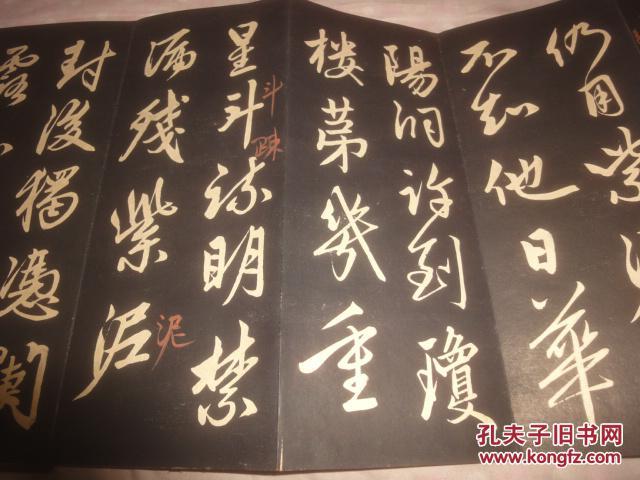 仍用紫
不知他日華
陽洞許到瓊
楼第幾重
星斗疎明禁
斗
踈
漏残紫泥
泥
封後獨憑闌
露
孔夫子旧书网
www.kongfz.com